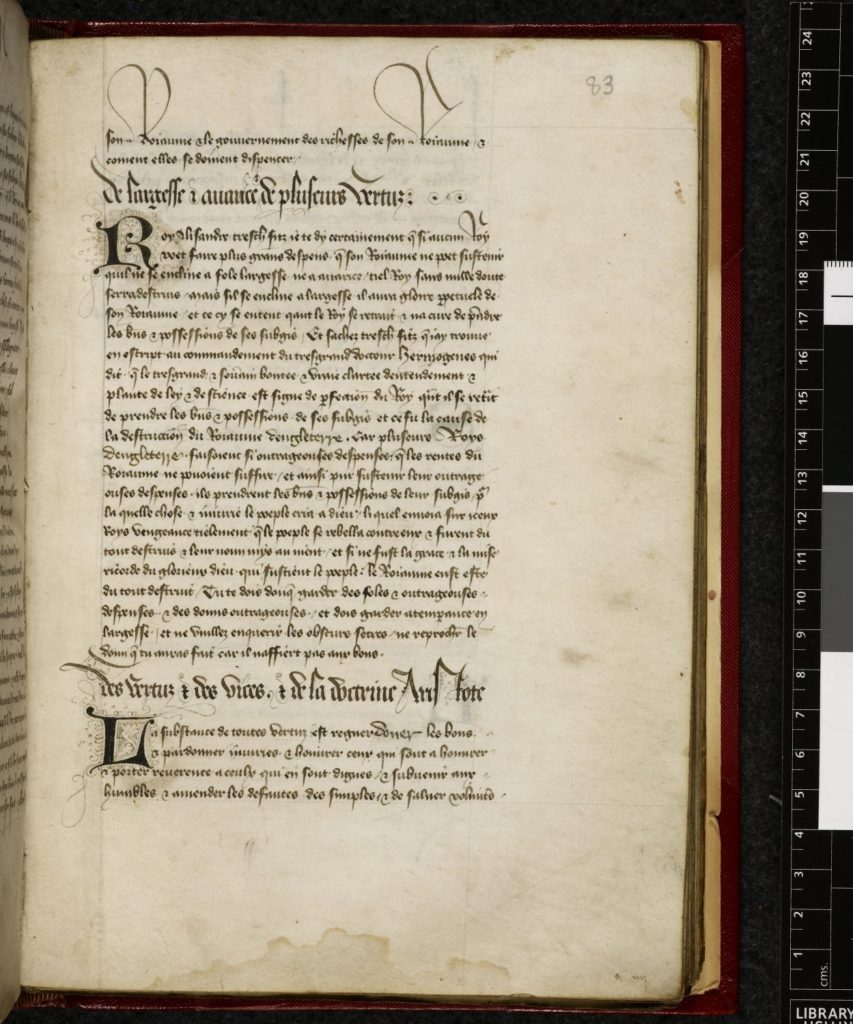 83
son Roiaume & le gouvernement des richesses de son Roiaume &
coment elles se doiuent dispencer
De largesse & auarice & de plusieurs vertuz :
Roy Alisandre tresch fitz ie te dy certainement q si aucun Roy
voet faire plus grans despens q son Roiaume ne poet sustenir
quil ne se encline a fole largesse ne a auarice tiel Roy sans nulle doute
serra destruis mais sil se encline a largesse il aura gloire ppetuele de
son Roiaume et ce cy se entent qant le Roy se retrait & na cure de pndre
les bns & possessions de ses subgis Et sachez tresch fitz q iay trouue
en escript au commandement du tresgrand doctour hermogenes qui
dit q le tresgrand & souain bontee & vraie clartee dentendement &
plante de ley & de science est signe de pfection du Roy qnt il se retrt
de prendre les bns & possessions de ses subgis et ce fu la cause de
la destruccion du Roiaume dengleterre Car plusieurs Roys
dengleterre faisoient si outrageouses despenses q les rentes du
Roiaume ne pouoient suffire et ainsi pur sustenir leur outrage
ouses despenses ils prendrent les bns & possessions de leur subgis p
la quelle chose & iniurie le poeple cria a dieu li quel enuoia sur iceux
Roys vengeance tielement q le poeple se rebella contre eux & furent du
tout destruis & leur nom mys au nient et si ne fust la grace & la mise
ricorde du glorieux dieu qui sustient le poeple le Roiaume eust este
du tout destruit Tu te dois donq garder des foles & outrageouses
despenses & des donns outrageouses et dois garder atemperance en
largesse et ne vuillez enquerir les obscurs secres ne reprochr le
donn q tu auras fait car il naffiert pas aux bons
Des vertuz & des vices & de la doctrine Aristote
La substance de toutes vertuz est regner doner les bons
& pardonner iniuries & honurer ceux qui sont a honurer
& porter reuerence a ceulx qui en sont dignes & subuenir aux
humbles & amender les defautes des simples & de saluer volunts
24
23
22
21
20
19
18
17
16
15
14
13
12
11
10
9
8
7
6
5
4
3
2
1
cms.
LIBRARY